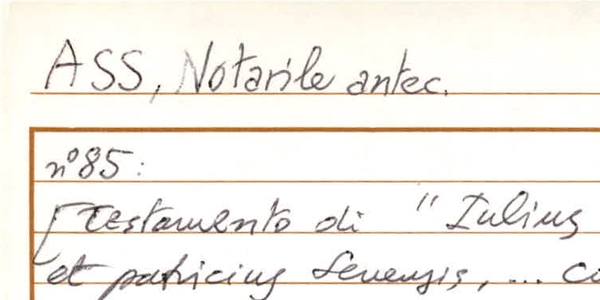 ASS, Notarile antec.
n° 85:
[Testamento di "Iulius
et patricius Senensis, ...